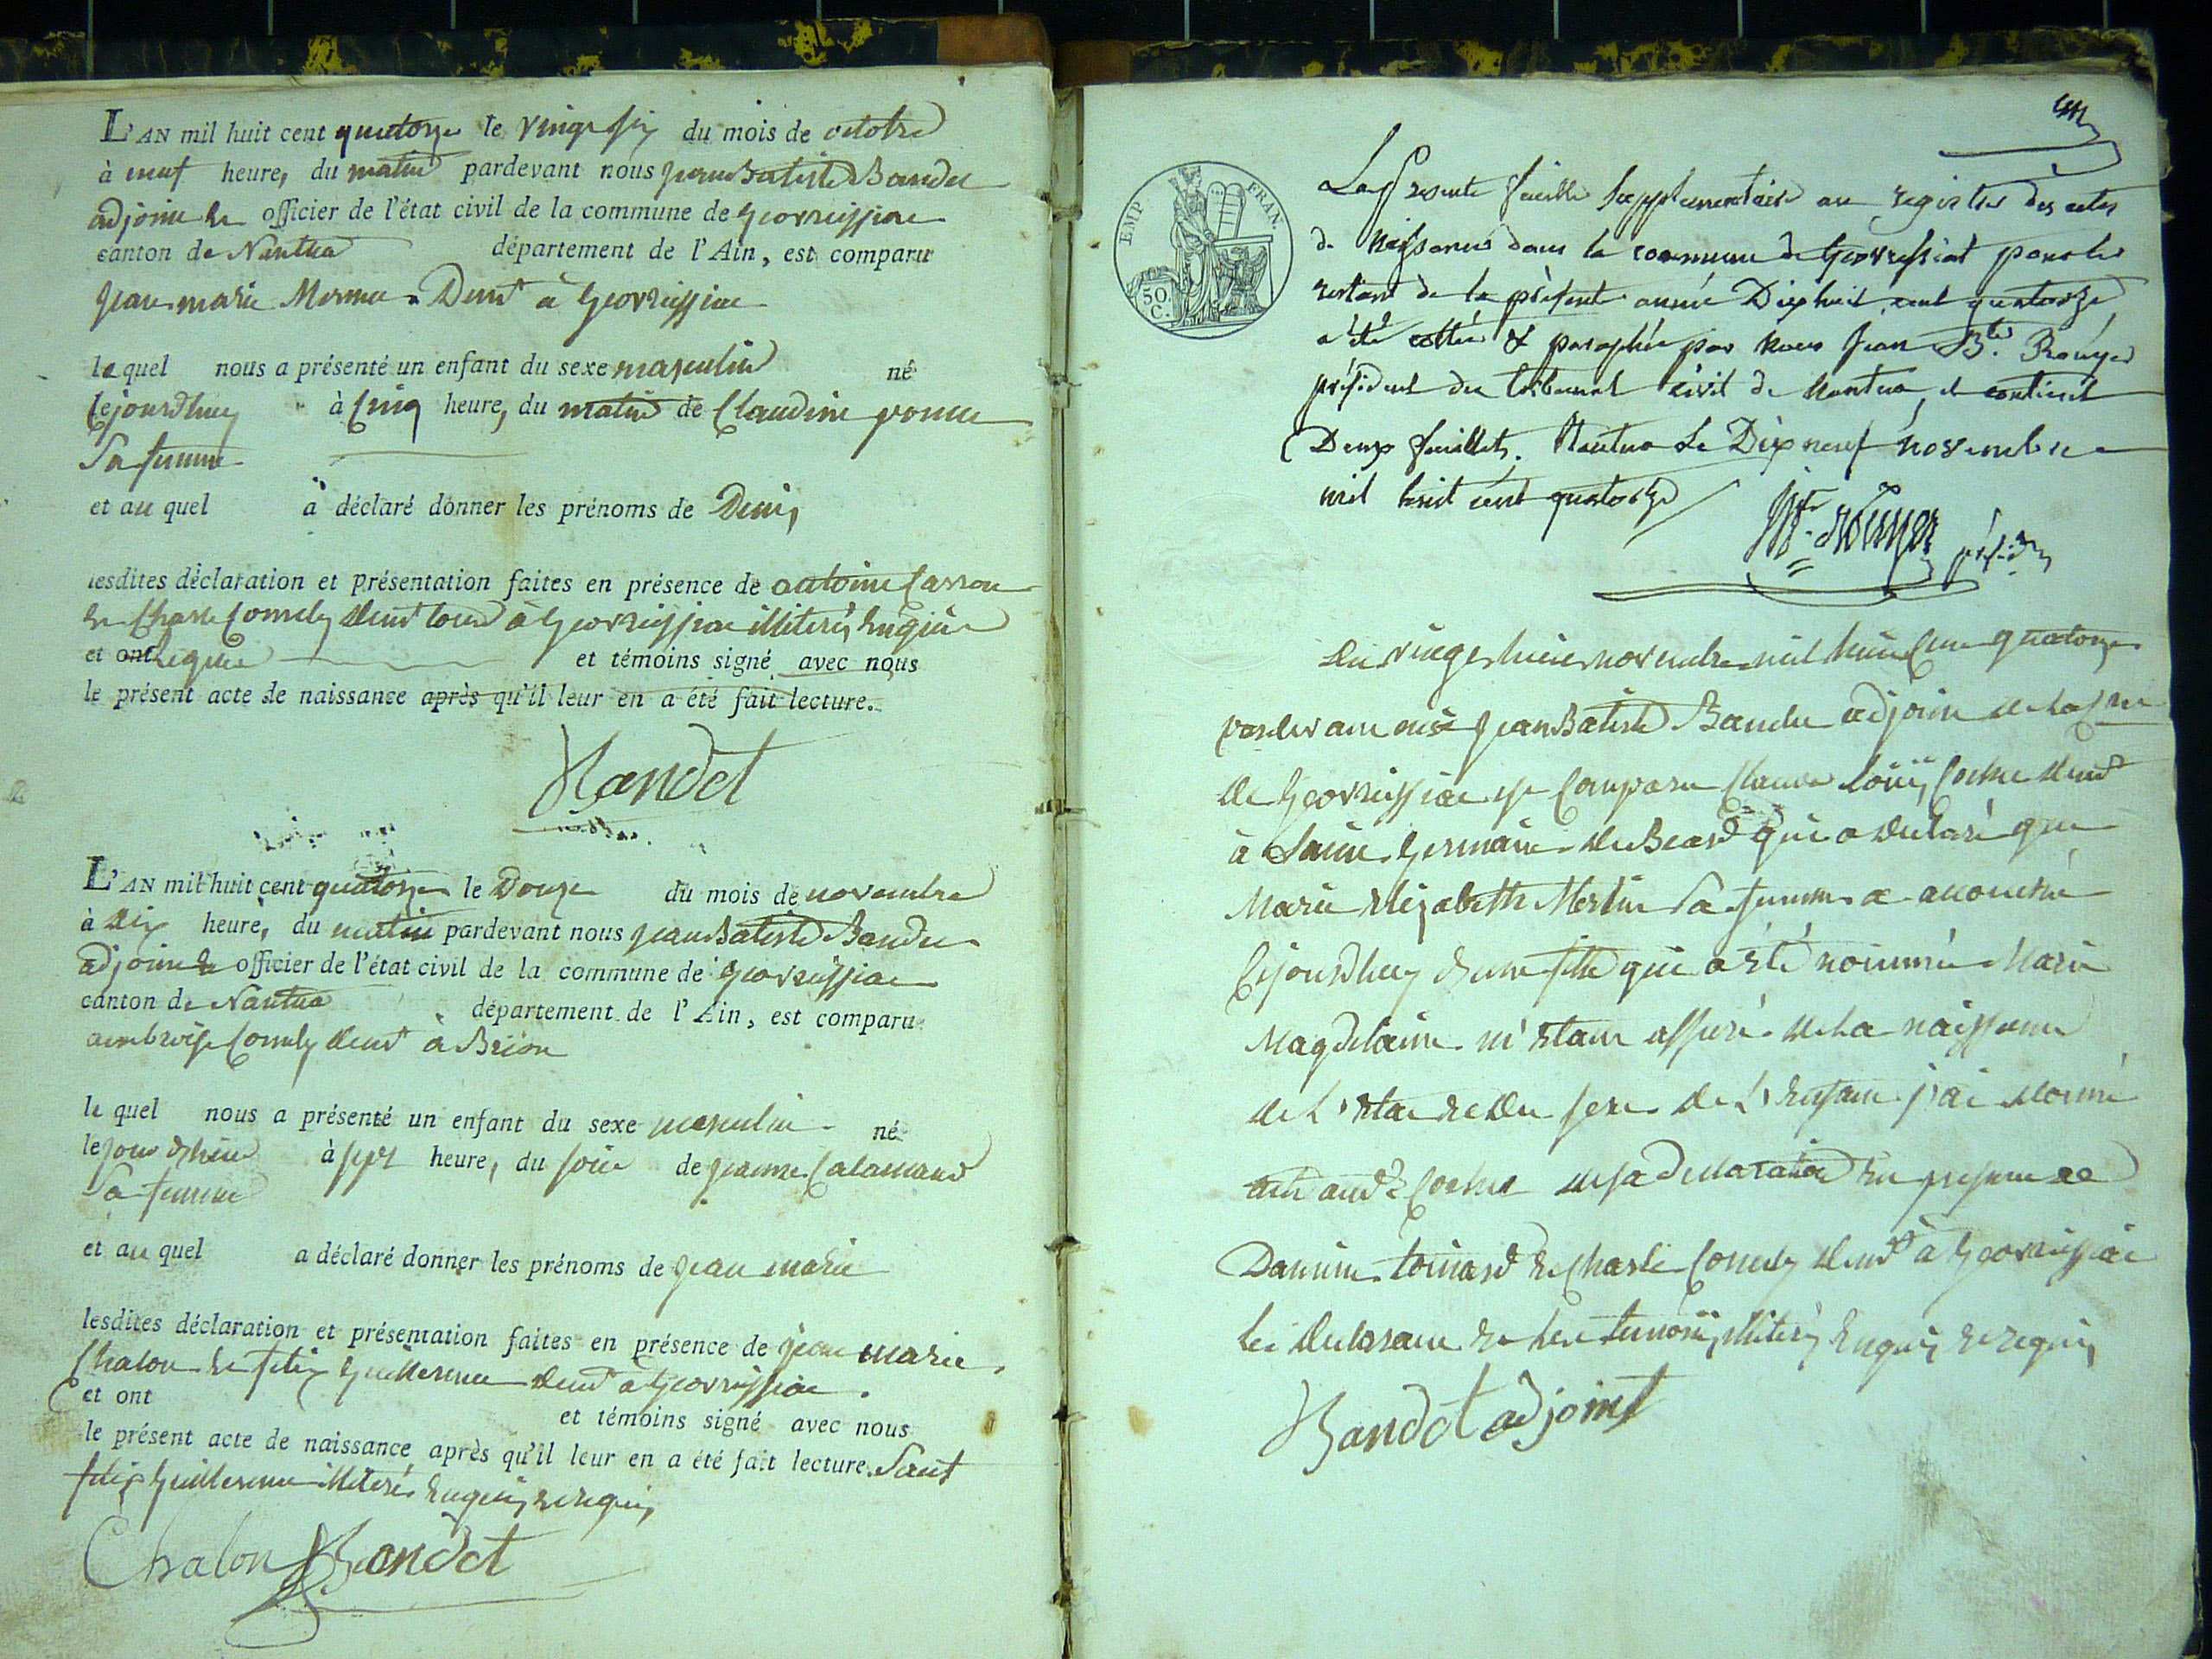 L'AN mil huit cent quatorze le vingt six du mois de octobre
à neuf heure, du matin pardevant nous jean Batiste Bandet
adjoint et officier de l'état civil de la commune de geovreissiat
canton de Nantua département de l'Ain, est comparu
jean marie Demt à geovreissiat
le quel nous a présenté un enfant du sexe masculin né
cejourdhuy à cinq heure, du matin de Claudine
sa femme
et au quel a déclaré donner les prénoms de Denis
lesdites déclaration et présentation faites en présence de antoine
et Charle Comely demt tous à geovreissiat illiterés enquis
et ont requis et témoins signé avec nous
le présent acte de naissance après qu'il leur en a été fait lecture.
Bandet
L'AN mil huit cent quatorze le Douze du mois de novembre
à dix heure, du matin pardevant nous jean Batiste Bandet
adjoint et officier de l'état civil de la commune de geovreissiat
canton de Nantua département de l'Ain, est comparu
ambroise Comely demt à Brion
le quel nous a présenté un enfant du sexe masculin né
à sept heure, du soir de jeanne
sa femme
et au quel a déclaré donner les prénoms de jean marie
lesdites déclaration et présentation faites en présence de jean marie
Chalon et felix guillerme demt à geovreissiat
et ont et témoins signé avec nous
le présent acte de naissance après qu'il leur en a été fait lecture. Sauf
felix guillerme illiteré enquis et requis
Chalon Bandet
EMP. FRAN.
50
C.
La presente feuille supplementaire au registre des actes
de Naissances dans la commune de Geovressiat pour le
restant de la présente année Dix huit cent quatorze
a été cottée & paraphée par nous Jean Bte. Rouyer
président du tribunal civil de Nantua, et contient
Deux feuillets. Nantua le Dix neuf novembre
mil huit cent quatorze
Rouyer présidt
Du vingt huit novembre mil huit cent quatorze
pardevant nous jean Batiste Bandet adjoint de la
de geovreissiat est comparu Claude Louis demt
à Saint germain de Beard qui a declaré que
Marie Elizabeth sa femme a accouché
cejourdhuy d'une fille qui a été nommée Marie
Magdelaine m'etant assuré de la naissance
de l'etat et du sexe de l'enfant j'ai donné
acte audt de sa declaration en presence de
et Charle Comely demt à geovreissiat
le declarant et les temoins illiterés enquis et requis
Bandet adjoint